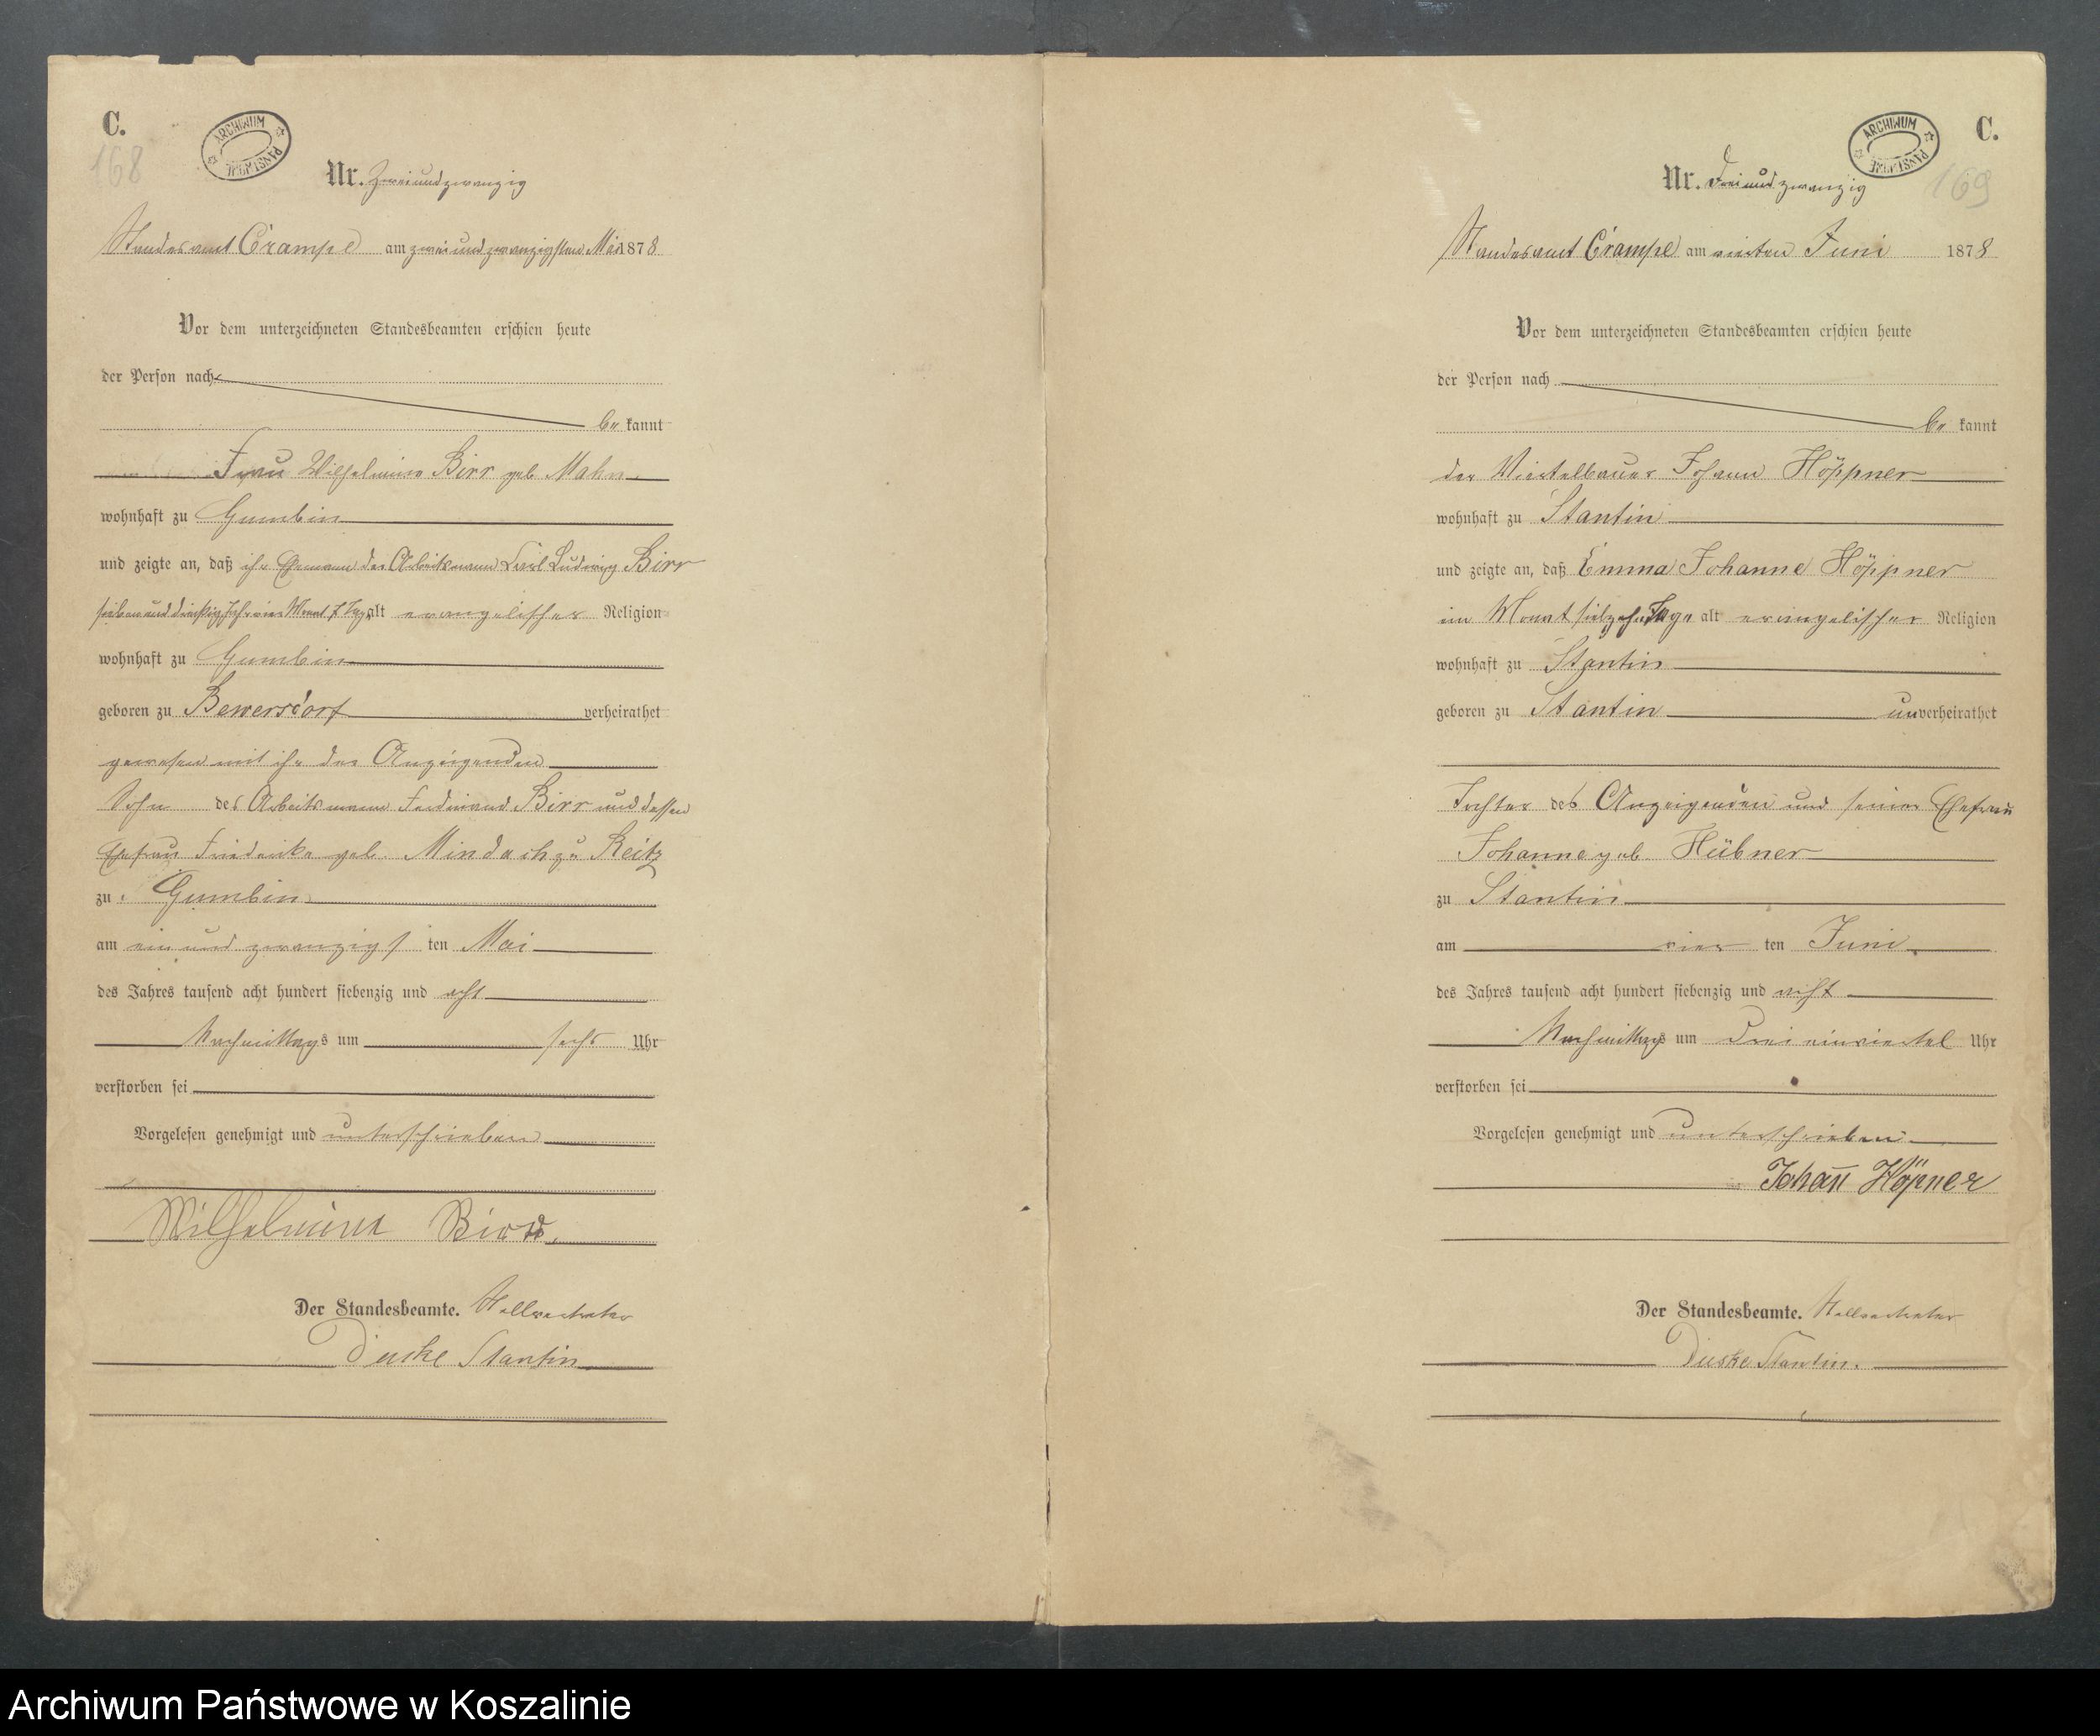 C.
168
ARCHIWUM PAŃSTWOWE
Nr. Zweiundzwanzig
Standesamt Crampe am zweiundzwanzigsten Mai 1878
Vor dem unterzeichneten Standesbeamten erschien heute
der Person nach
bekannt
Frau Wilhelmine Birr geb. Mahn
wohnhaft zu Gumbin
und zeigte an, daß ihr Ehemann der Arbeitsmann Carl Ludwig Birr
siebenunddreißig Jahr ein Monat 7 Tage alt evangelischer Religion
wohnhaft zu Gumbin
geboren zu Bewersdorf verheirathet
gewesen mit ihr der Anzeigenden
Sohn des Arbeitsmann Ferdinand Birr und dessen
Ehefrau Friederike geb. Mindach zu Reitz
zu Gumbin
am ein und zwanzigsten Mai
des Jahres tausend acht hundert siebenzig und acht
Nachmittags um sechs Uhr
verstorben sei
Vorgelesen genehmigt und unterschrieben
Wilhelmine Birr.
Der Standesbeamte. Stellvertreter
Duske Stantin
C.
169
ARCHIWUM PAŃSTWOWE
Nr. Dreiundzwanzig
Standesamt Crampe am vierten Juni 1878
Vor dem unterzeichneten Standesbeamten erschien heute
der Person nach
bekannt
der Viertelbauer Johann Höppner
wohnhaft zu Stantin
und zeigte an, daß Emma Johanne Höppner
ein Monat siebzehn Tage alt evangelischer Religion
wohnhaft zu Stantin
geboren zu Stantin unverheirathet
Tochter des Anzeigenden und seiner Ehefrau
Johanne geb. Hübner
zu Stantin
am vierten Juni
des Jahres tausend acht hundert siebenzig und acht
Nachmittags um drei einviertel Uhr
verstorben sei
Vorgelesen genehmigt und unterschrieben
Johan̄ Höpner
Der Standesbeamte. Stellvertreter
Duske Stantin.
Archiwum Państwowe w Koszalinie